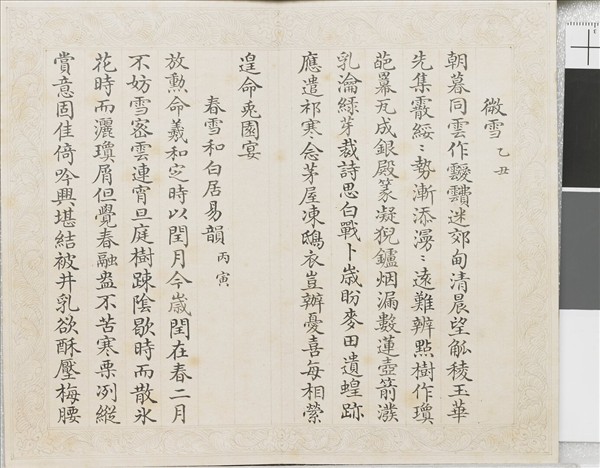 微雪乙丑
朝暮同雲作靉靆迷郊甸清晨望觚稜玉華
先集霰綏〻勢漸添漫〻遠難辨點樹作瓊
葩羃瓦成銀殿篆凝猊鑪烟漏數蓮壺箭濮
乳瀹綠芽裁詩思白戰卜歲盼麥田遺蝗跡
應遣祁寒念茅屋凍鴟衣豈辦憂喜每相縈
遑命兎園宴
春雪和白居易韻丙寅
放勲命羲和定時以閏月今歲閏在春二月
不妨雪密雲連宵旦庭樹踈陰歇時而散氷
花時而灑瓊屑但覺春融盎不苦寒栗冽縱
賞意固佳倚吟興堪結被井乳欲酥壓梅腰